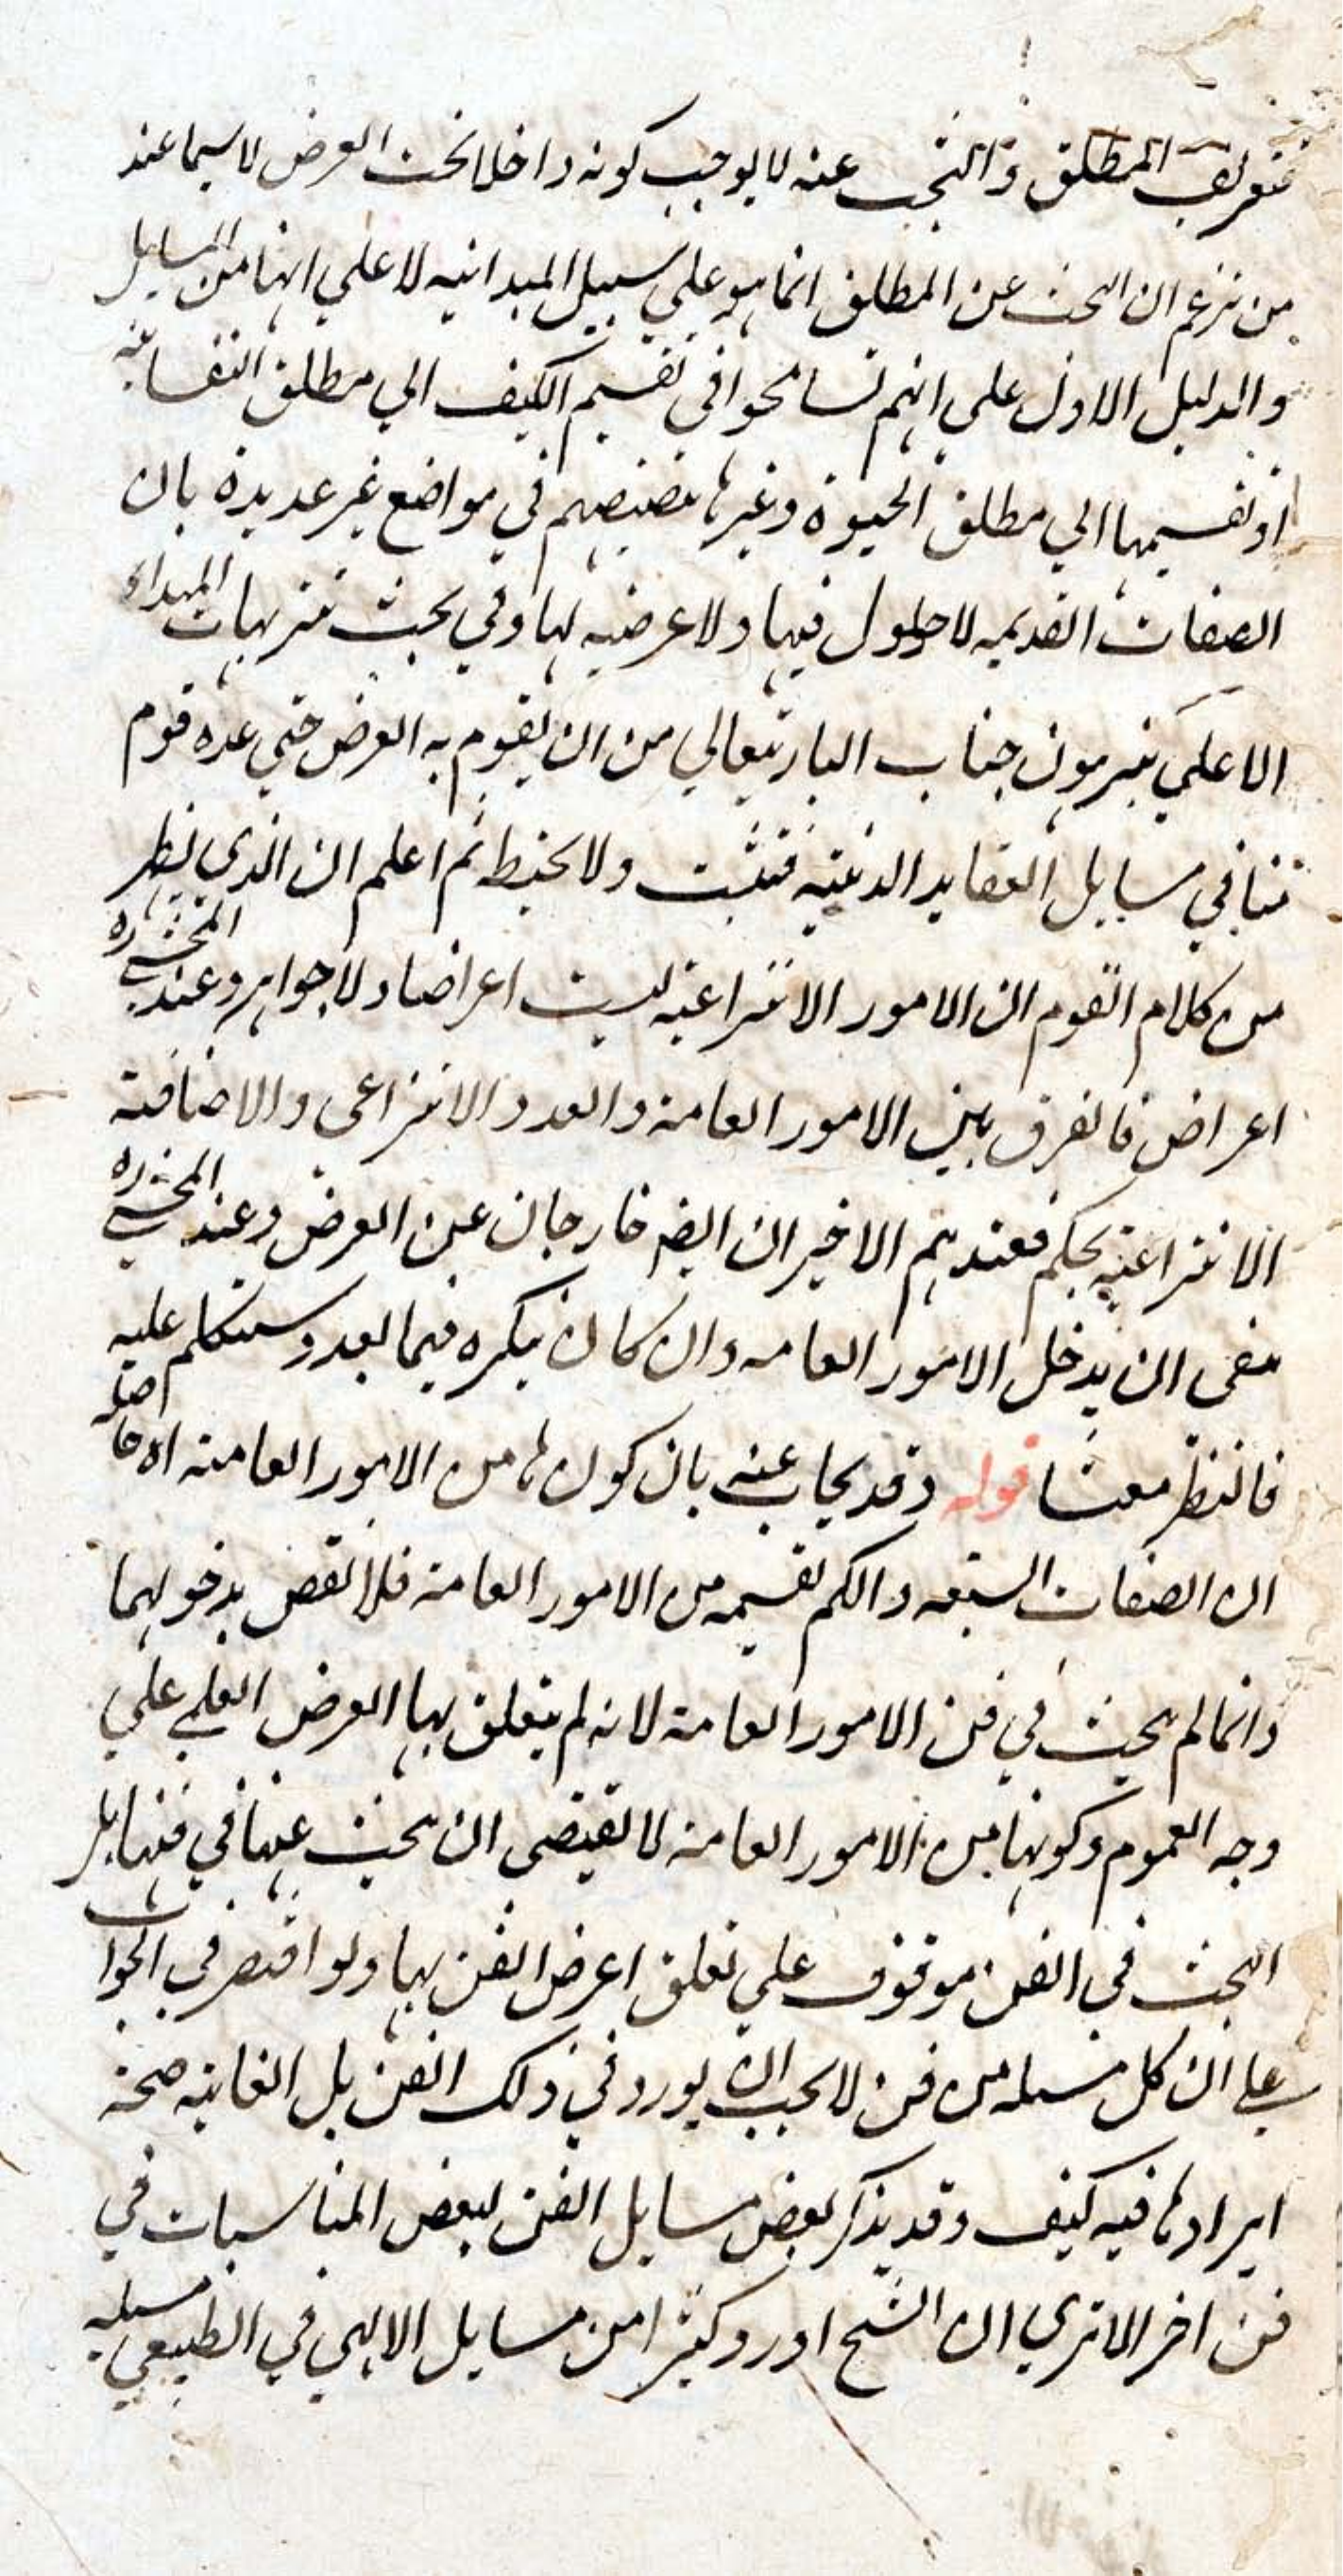 فتعريف المطلق والبحث عنه لا يوجب كونه داخلا تحت العرض لا سيما عند
من يزعم ان البحث عن المطلق انما هو على سبيل المبدائيه لا على انها من المسايل
والدليل الاول على انهم تسامحوا في تقسيم الكيف الي مطلق النفسانية
او تقسيمها الي مطلق الحيوة وغيرها تنصيصهم في مواضع غير عديدة بان
الصفات القديمه لا حلول فيها ولا عرضيه لها وفي بحث تنزيهات المبداء
الاعلي يبرمون جناب الباري تعالي من ان يقوم به العرض حتي عده قوم
منا في مسايل العقايد الدينيه فتثبت ولا تخبط ثم اعلم ان الذي يظهر
من كلام القوم ان الامور الانتزاعية ليست اعراضا ولا جواهر وعند المحشي ره
اعراض فالفرق بين الامور العامة والعدد الانتزاعي والاضافة
الانتزاعية تحكم فعندهم الاخيران ايضا خارجان عن العرض وعند المحشي ره
ينبغي ان يدخل الامور العامه وان كان ينكره فيما بعد وسنتكلم عليه
فانتظر مفتشا قوله وقد يجاب عنه بان كونها من الامور العامة اه حاصله
ان الصفات السبعه والكم بقسيمه من الامور العامة فلا نقض بدخولهما
وانما لم يبحث في فن الامور العامة لانه لم يتعلق بها الغرض العلمي علي
وجه العموم وكونها من الامور العامة لا يقتضي ان يبحث عنها في فنها بل
البحث في الفن موقوف علي تعلق اغرض الفن بها ولو اقتصر في الجواب
علي ان كل مسئله من فن لا يجب ان يورد في ذلك الفن بل الغاية صحة
ايرادها فيه كيف وقد يذكر بعض مسايل الفن لبعض المناسبات في
فن اخر الا تري ان الشيخ اورد كثيرا من مسايل الالهي في الطبيعي